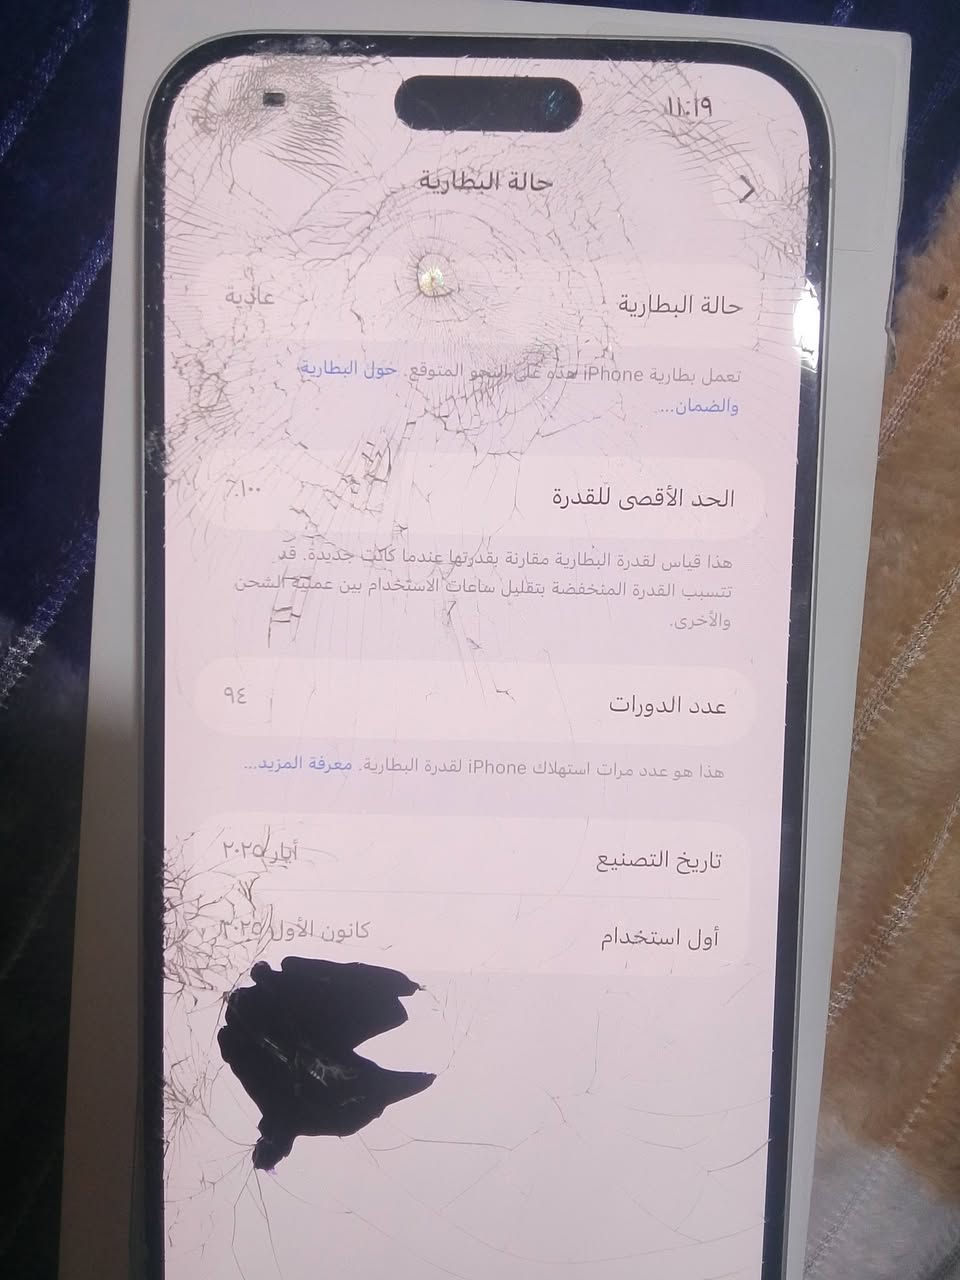 ١١:١٩
حالة البطارية
حالة البطارية عادية
تعمل بطارية iPhone هذه على النحو المتوقع. حول البطارية
والضمان...
الحد الأقصى للقدرة ٪١٠٠
هذا قياس لقدرة البطارية مقارنة بقدرتها عندما كانت جديدة. قد
تتسبب القدرة المنخفضة بتقليل ساعات الاستخدام بين عملية الشحن
والأخرى.
عدد الدورات ٩٤
هذا هو عدد مرات استهلاك iPhone لقدرة البطارية. معرفة المزيد...
تاريخ التصنيع أيار ٢٠٢٥
أول استخدام كانون الأول ٢٠٢٥